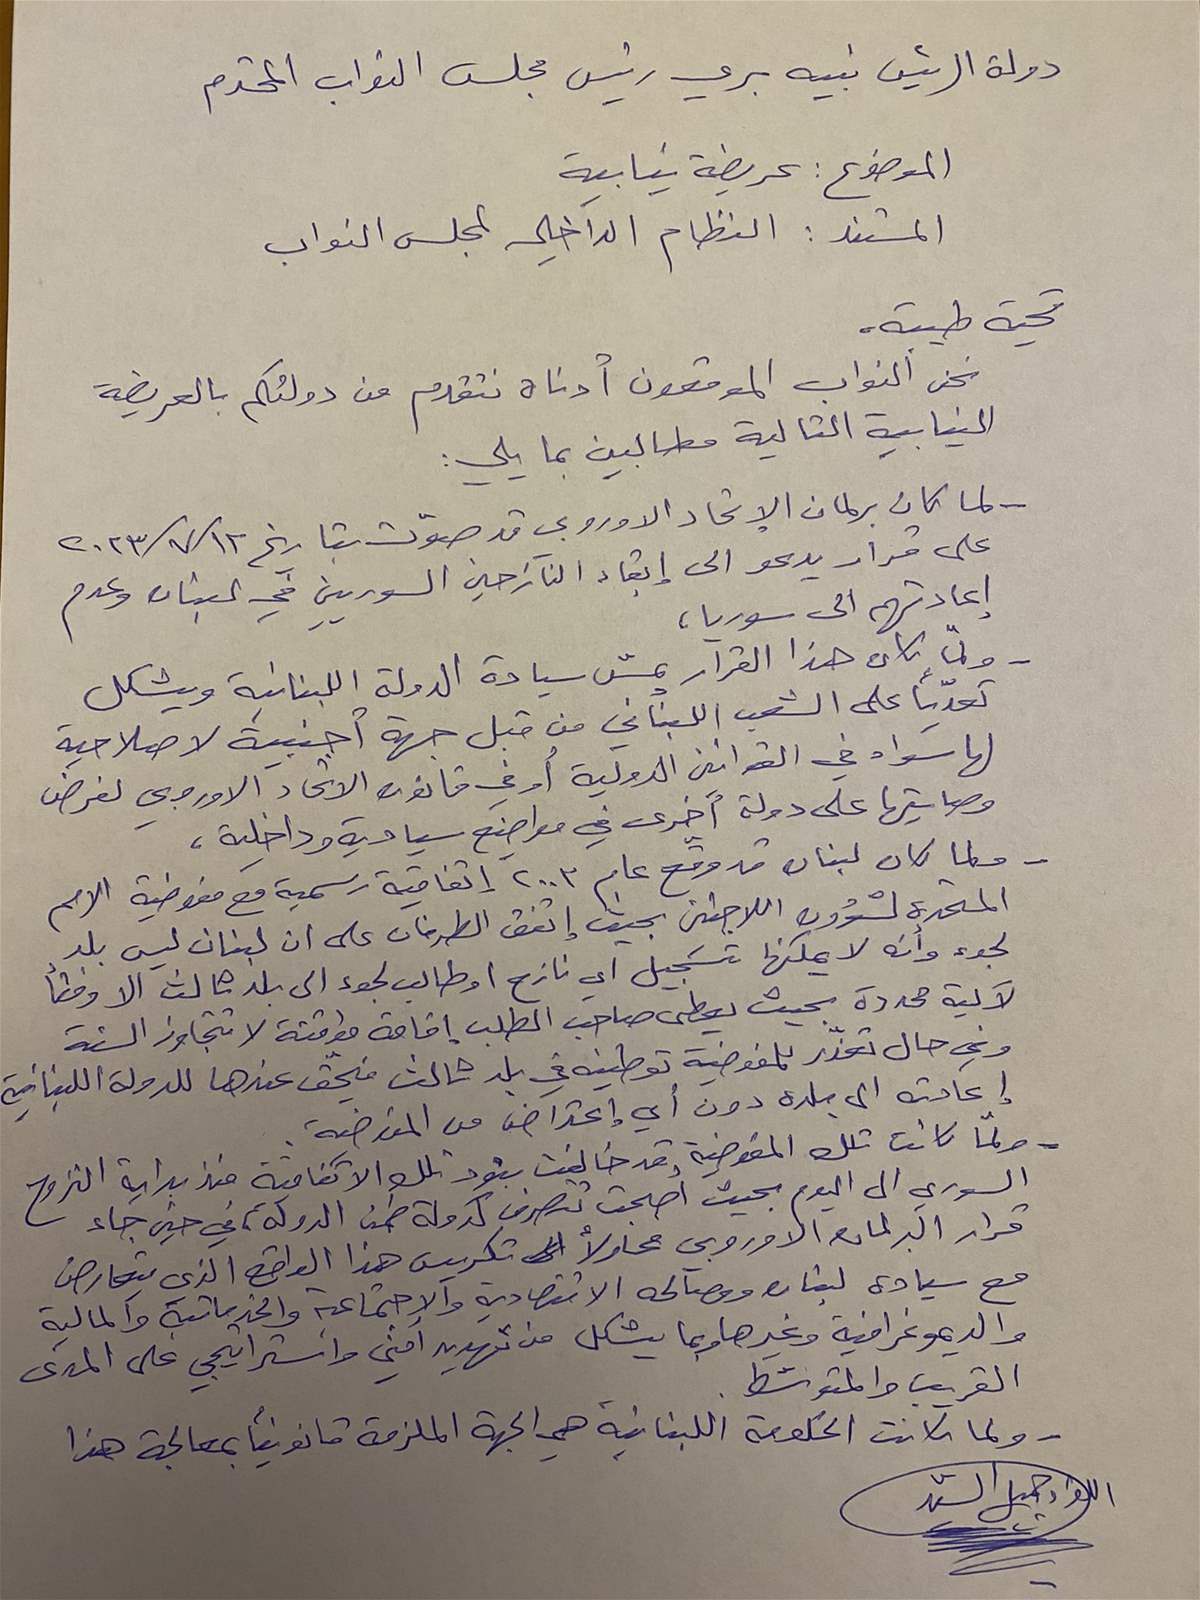 دولة الرئيس نبيه بري رئيس مجلس النواب المحترم
الموضوع : عريضة نيابية
المستند : النظام الداخلي لمجلس النواب
تحية طيبة،
نحن النواب الموقعون أدناه نتقدم من دولتكم بالعريضة
النيابية التالية مطالبين بما يلي :
- لما كان برلمان الإتحاد الاوروبي قد صوّت بتاريخ ٢٠٢٣/٧/١٢
على قرار يدعو الى إبقاء النازحين السوريين في لبنان وعدم
إعادتهم الى سوريا،
- ولمّا كان هذا القرار يمسّ سيادة الدولة اللبنانية ويشكل
تعدّياً على الشعب اللبناني من قبل جهة أجنبية لا صلاحية
لها سواء في القوانين الدولية أو في قانون الاتحاد الاوروبي لفرض
وصايتها على دولة أخرى في مواضيع سيادية وداخلية،
- ولما كان لبنان قد وقّع عام ٢٠٠٣ إتفاقية رسمية مع مفوضية الامم
المتحدة لشؤون اللاجئين بحيث إتفق الطرفان على ان لبنان ليس بلد
لجوء وأنه لا يمكنها تسجيل اي نازح او طالب لجوء الى بلد ثالث الا وفقاً
لآلية محددة بحيث يعطى صاحب الطلب إقامة مؤقتة لا تتجاوز السنة
وفي حال تعذّر للمفوضية توطينه في بلد ثالث فيحقّ عندها للدولة اللبنانية
إعادته الى بلده دون أي إعتراض من المفوضية.
- ولمّا كانت تلك المفوضية قد خالفت بنود تلك الاتفاقية منذ بداية النزوح
السوري الى اليوم بحيث أصبحت تتصرف كدولة ضمن الدولة، في حين جاء
قرار البرلمان الاوروبي محاولاً تكريس هذا الواقع الذي يتعارض
مع سيادة لبنان ومصالحه الاقتصادية والإجتماعية والخدماتية والمالية
والديموغرافية وغيرها وبما يشكل من تهديد أمني واستراتيجي على المدى
القريب والمتوسط.
- ولما كانت الحكومة اللبنانية هي الجهة الملزمة قانونياً بمعالجة هذا
اللواء جميل السيّد